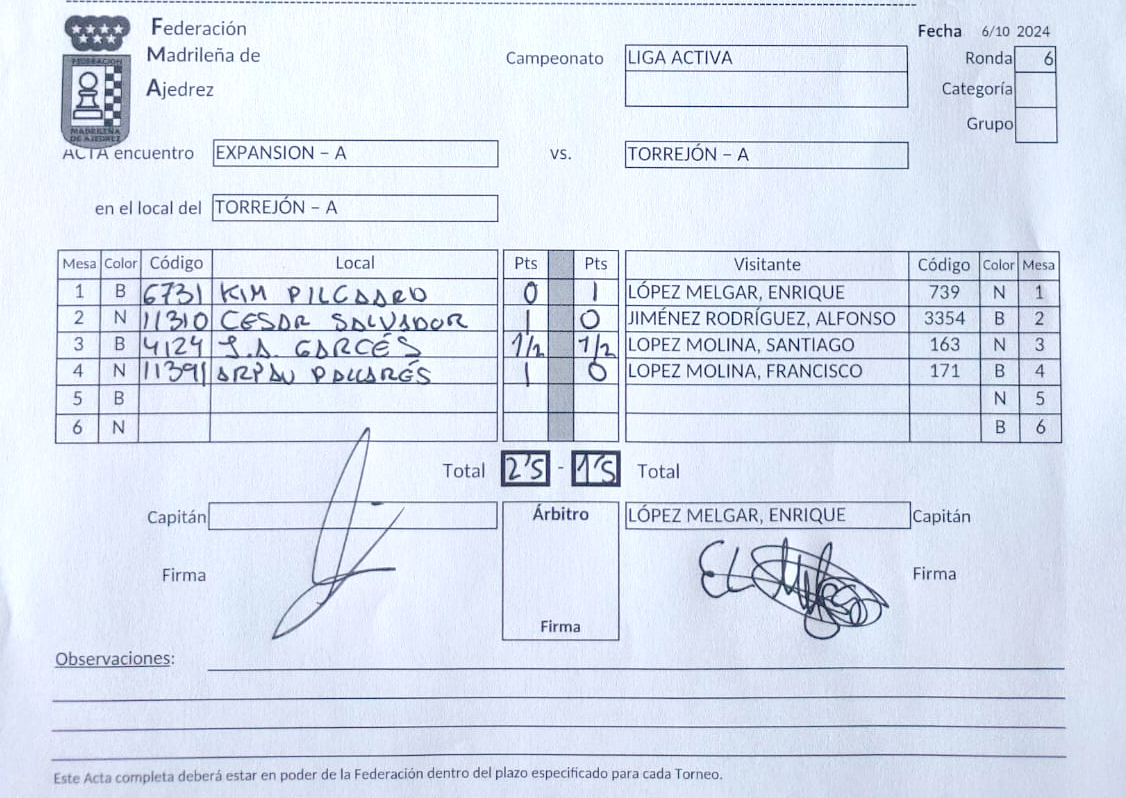 Federación
Madrileña de
Ajedrez
FEDERACION
MADRILEÑA
DE AJEDREZ
Fecha 6/10 2024
Campeonato LIGA ACTIVA
Ronda 6
Categoría
Grupo
ACTA encuentro EXPANSION – A vs. TORREJÓN – A
en el local del TORREJÓN – A
Mesa Color Código Local Pts Pts Visitante Código Color Mesa
1 B 6731 KIM 0 1 LÓPEZ MELGAR, ENRIQUE 739 N 1
2 N 11310 CESAR SALVADOR 1 0 JIMÉNEZ RODRÍGUEZ, ALFONSO 3354 B 2
3 B 4124 J.A. GARCÉS 1/2 1/2 LOPEZ MOLINA, SANTIAGO 163 N 3
4 N 11391 1 0 LOPEZ MOLINA, FRANCISCO 171 B 4
5 B N 5
6 N B 6
Total 2'5 - 1'5 Total
Capitán Árbitro LÓPEZ MELGAR, ENRIQUE Capitán
Firma Firma
Firma
Observaciones:
Este Acta completa deberá estar en poder de la Federación dentro del plazo especificado para cada Torneo.